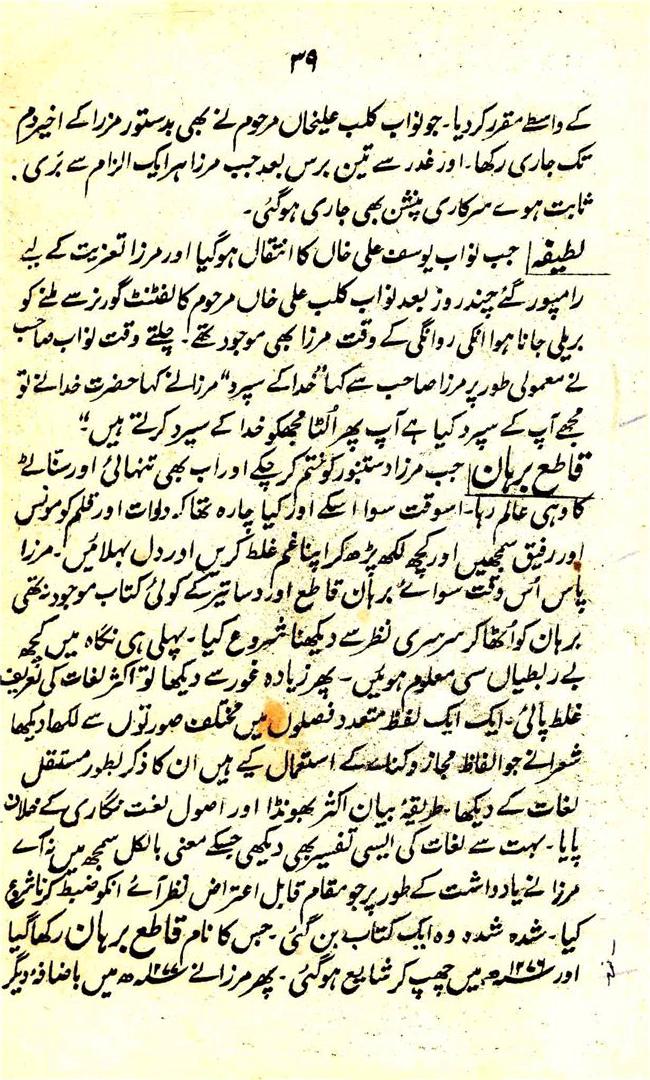 ۳۹
کے واسطے مقرر کردیا۔ جو نواب کلب علیخاں مرحوم نے بھی بدستور مرزا کے اخیر دم
تک جاری رکھا۔ اور غدر سے تین برس بعد جب مرزا ہر ایک الزام سے بَری
ثابت ہوے سرکاری پنشن بھی جاری ہوگئی۔
لطیفہ جب نواب یوسف علی خاں کا انتقال ہوگیا اور مرزا تعزیت کے لیے
رامپور گئے چند روز بعد نواب کلب علی خاں مرحوم کا لفٹنٹ گورنر سے ملنے کو
بریلی جانا ہوا انکی روانگی کے وقت مرزا بھی موجود تھے۔ چلتے وقت نواب صاحب
نے معمولی طور پر مرزا صاحب سے کہا "خدا کے سپرد" مرزا نے کہا حضرت خدا نے تو
مجھے آپ کے سپرد کیا ہے آپ پھر اُلٹا مجھکو خدا کے سپرد کرتے ہیں"
قاطع برہان جب مرزا دستنبو کو ختم کرچکے اور اب بھی تنہائی اور سناٹے
کا وہی عالم رہا۔ اسوقت سوا اسکے اور کیا چارہ تھا کہ دوات اور قلم کو مونس
اور رفیق سمجھیں اور کچھ لکھ پڑھ کر اپنا غم غلط کریں اور دل بہلائیں۔ مرزا
پاس اُس وقت سوائے برہان قاطع اور دساتیر کے کوئی کتاب موجود نہ تھی
برہان کو اُٹھا کر سرسری نظر سے دیکھنا شروع کیا۔ پہلی ہی نگاہ میں کچھ
بے ربطیاں سی معلوم ہوئیں۔ پھر زیادہ غور سے دیکھا تو اکثر لغات کی تعریف
غلط پائی۔ ایک ایک لفظ متعدد فصلوں میں مختلف صورتوں سے لکھا دیکھا
شعرا نے جو الفاظ مجاز و کنایہ کے استعمال کیے ہیں ان کا ذکر بطور مستقل
لغات کے دیکھا۔ طریقۂ بیان اکثر بھونڈا اور اصول لغت نگاری کے خلاف
پایا۔ بہت سے لغات کی ایسی تفسیر بھی دیکھی جسکے معنی بالکل سمجھ میں نہ آے
مرزا نے یادداشت کے طور پر جو مقام قابل اعتراض نظر آئے انکو ضبط کرنا شروع
کیا۔ شدہ شدہ وہ ایک کتاب بن گئی۔ جس کا نام قاطع برہان رکھا گیا
اور ۱۲۷۶ھ میں چھپ کر شایع ہوگئی۔ پھر مرزا نے ۱۲۷۷ھ میں باضافۂ دیگر